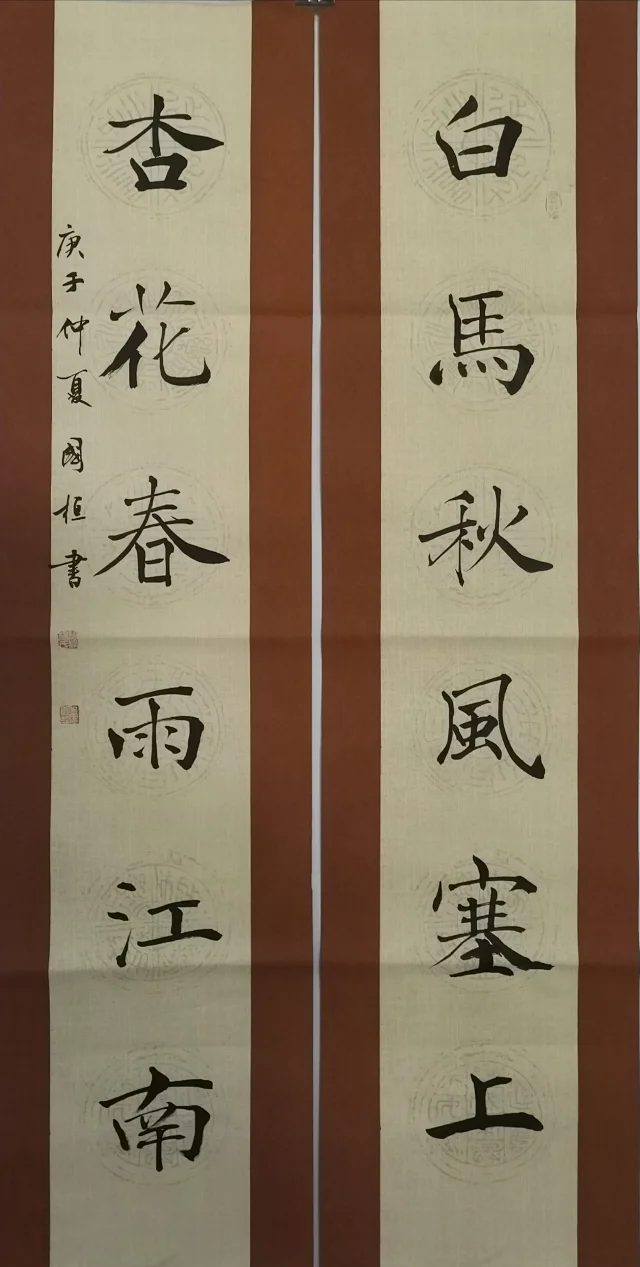 白馬秋風塞上
杏花春雨江南
庚子仲夏國桓書